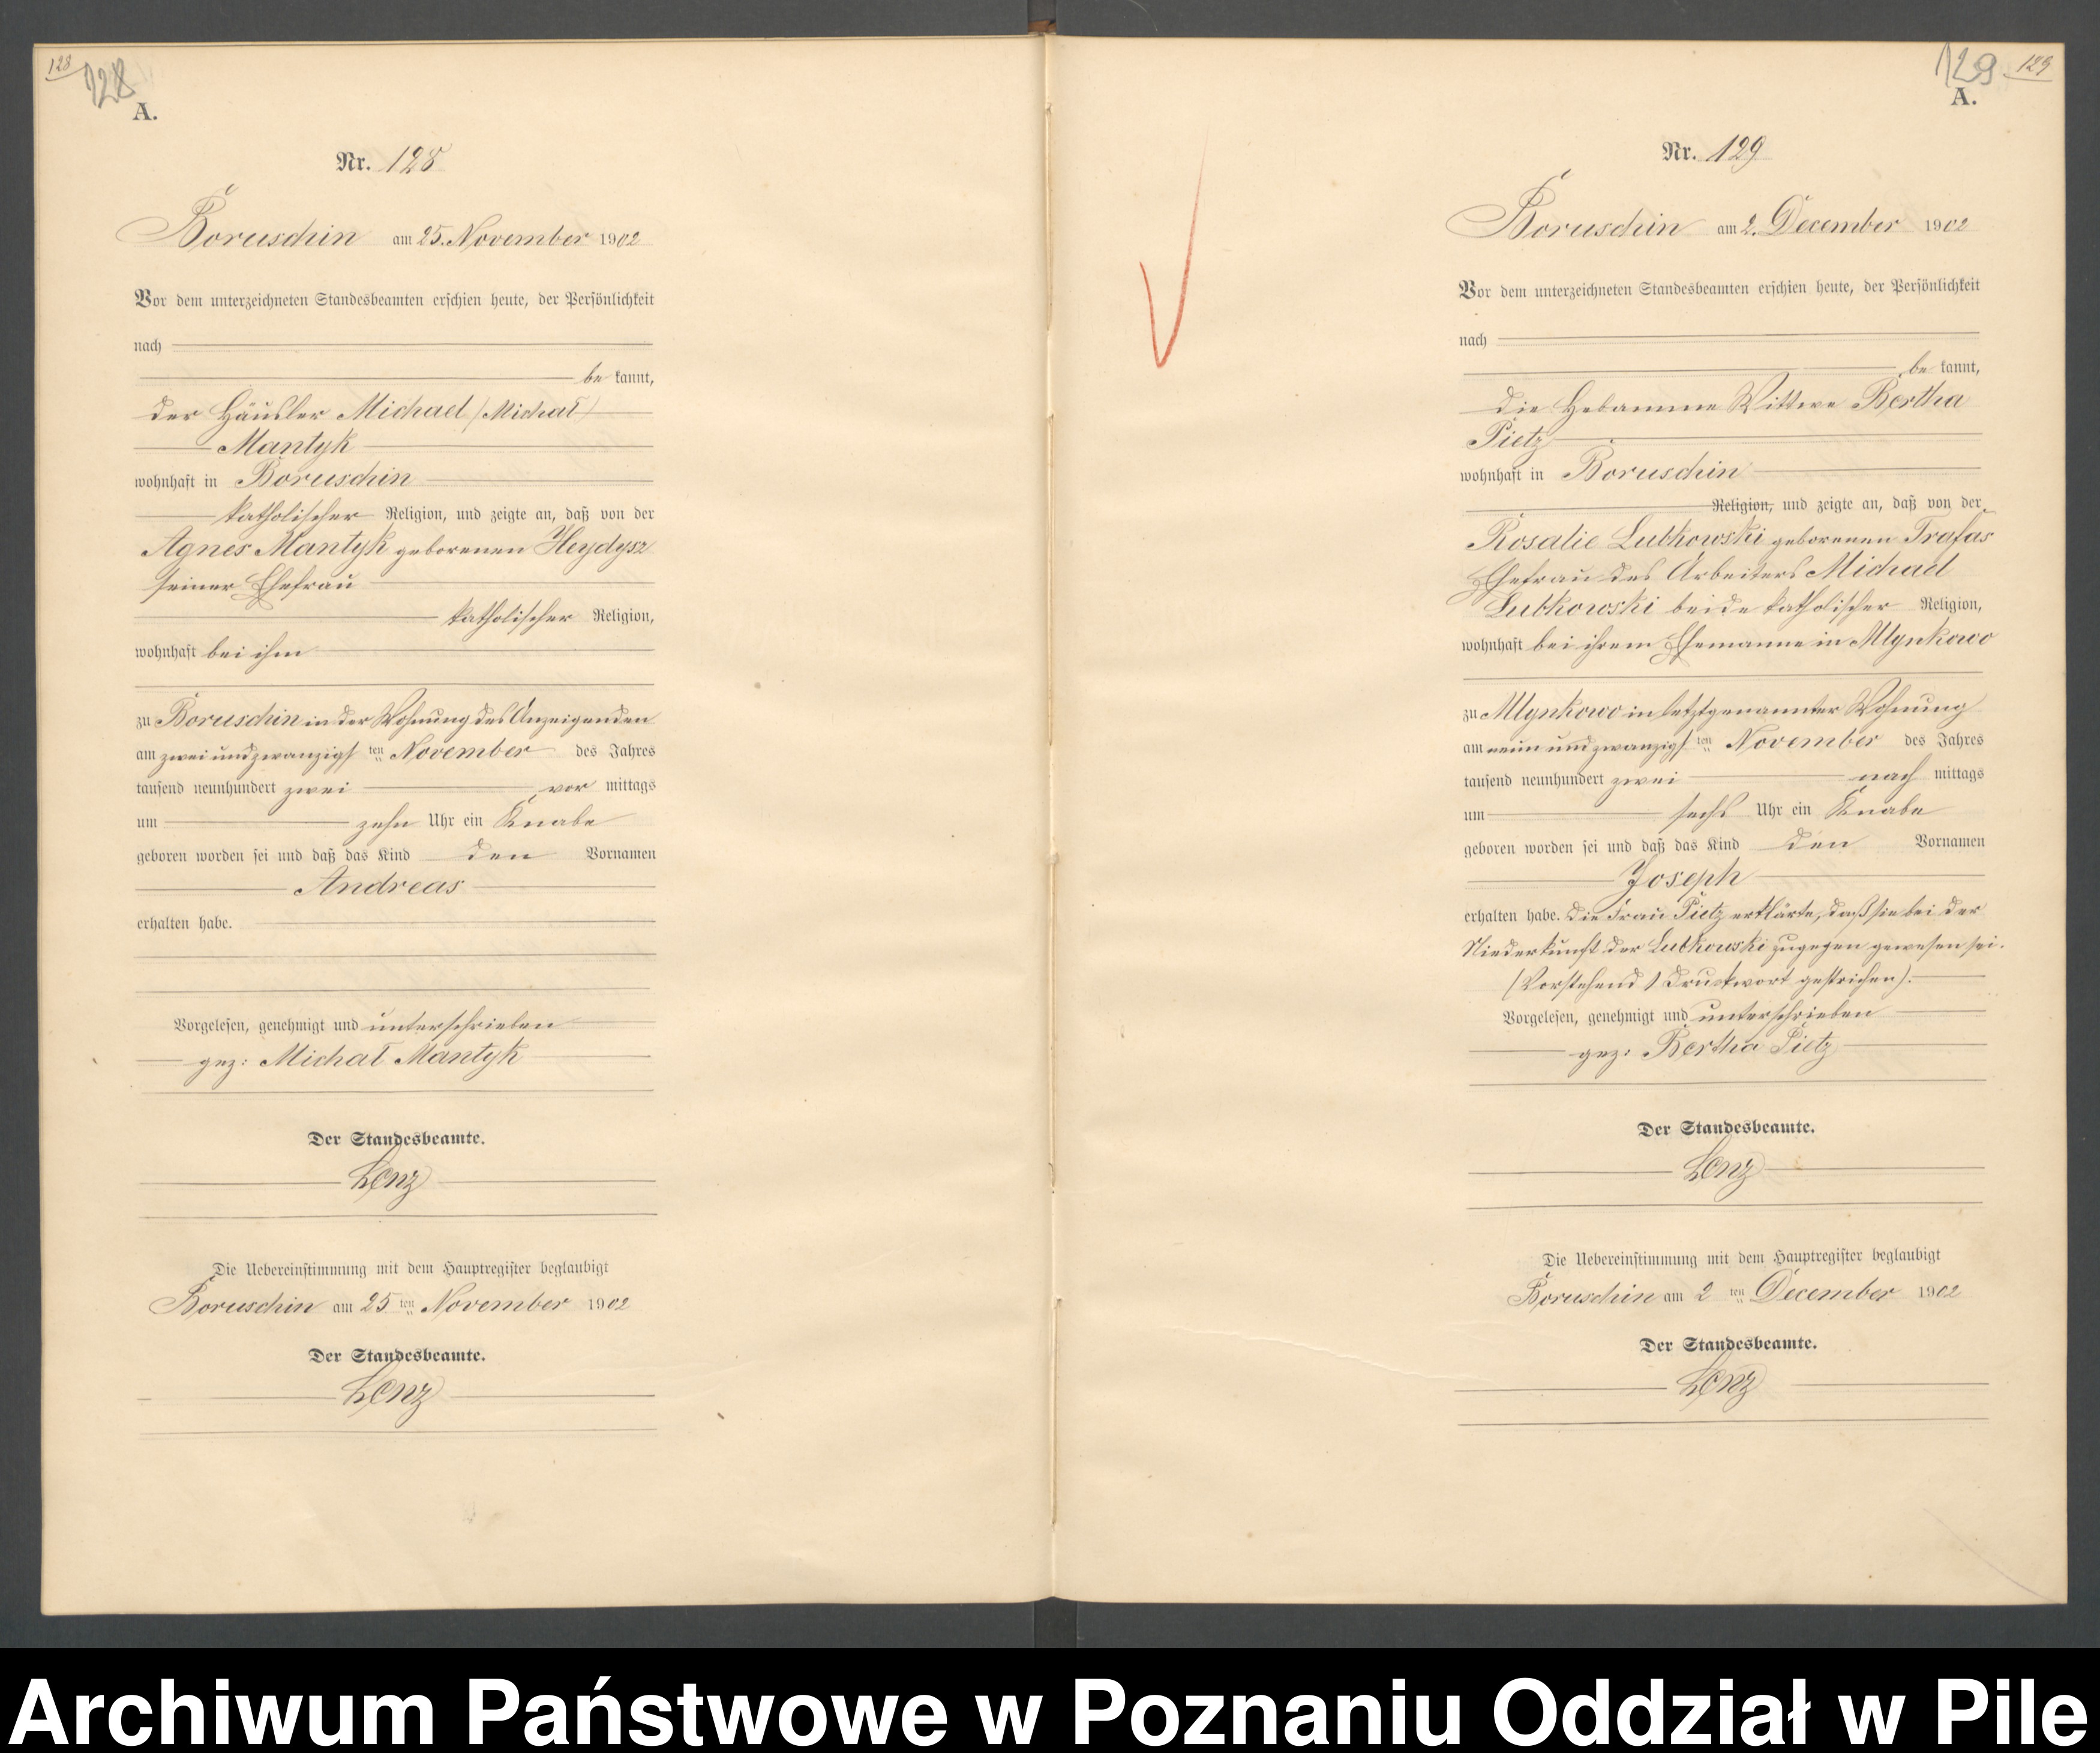 128
128
A.
Nr. 128
Boruschin am 25. November 1902
Vor dem unterzeichneten Standesbeamten erschien heute, der Persönlichkeit
nach
be kannt,
der Häusler Michael (Michał)
Mantyk
wohnhaft in Boruschin
katholischer Religion, und zeigte an, daß von der
Agnes Mantyk geborenen Heydysz
seiner Ehefrau
katholischer Religion,
wohnhaft bei ihm
zu Boruschin in der Wohnung des Anzeigenden
am zwei und zwanzigs ten November des Jahres
tausend neunhundert zwei vor mittags
um zehn Uhr ein Knabe
geboren worden sei und daß das Kind den Vornamen
Andreas
erhalten habe.
Vorgelesen, genehmigt und unterschrieben
gez: Michał Mantyk
Der Standesbeamte.
Lenz
Die Uebereinstimmung mit dem Hauptregister beglaubigt
Boruschin am 25 ten November 1902
Der Standesbeamte.
Lenz
129
129
A.
Nr. 129
Boruschin am 2. December 1902
Vor dem unterzeichneten Standesbeamten erschien heute, der Persönlichkeit
nach
be kannt,
die Hebamme Wittwe Bertha
Pietz
wohnhaft in Boruschin
Religion, und zeigte an, daß von der
Rosalie Lubkowski geborenen Trafas
Ehefrau des Arbeiters Michael
Lubkowski beide katholischer Religion,
wohnhaft bei ihrem Ehemanne in Mlynkowo
zu Mlynkowo in letztgenannter Wohnung
am neun und zwanzigs ten November des Jahres
tausend neunhundert zwei nach mittags
um sechs Uhr ein Knabe
geboren worden sei und daß das Kind den Vornamen
Joseph
erhalten habe. Die Frau Pietz erklärte, daß sie bei der
Niederkunft der Lubkowski zugegen gewesen sei.
(Vorstehend 1 Druckwort gestrichen).
Vorgelesen, genehmigt und unterschrieben
gez: Bertha Pietz
Der Standesbeamte.
Lenz
Die Uebereinstimmung mit dem Hauptregister beglaubigt
Boruschin am 2 ten December 1902
Der Standesbeamte.
Lenz
Archiwum Państwowe w Poznaniu Oddział w Pile